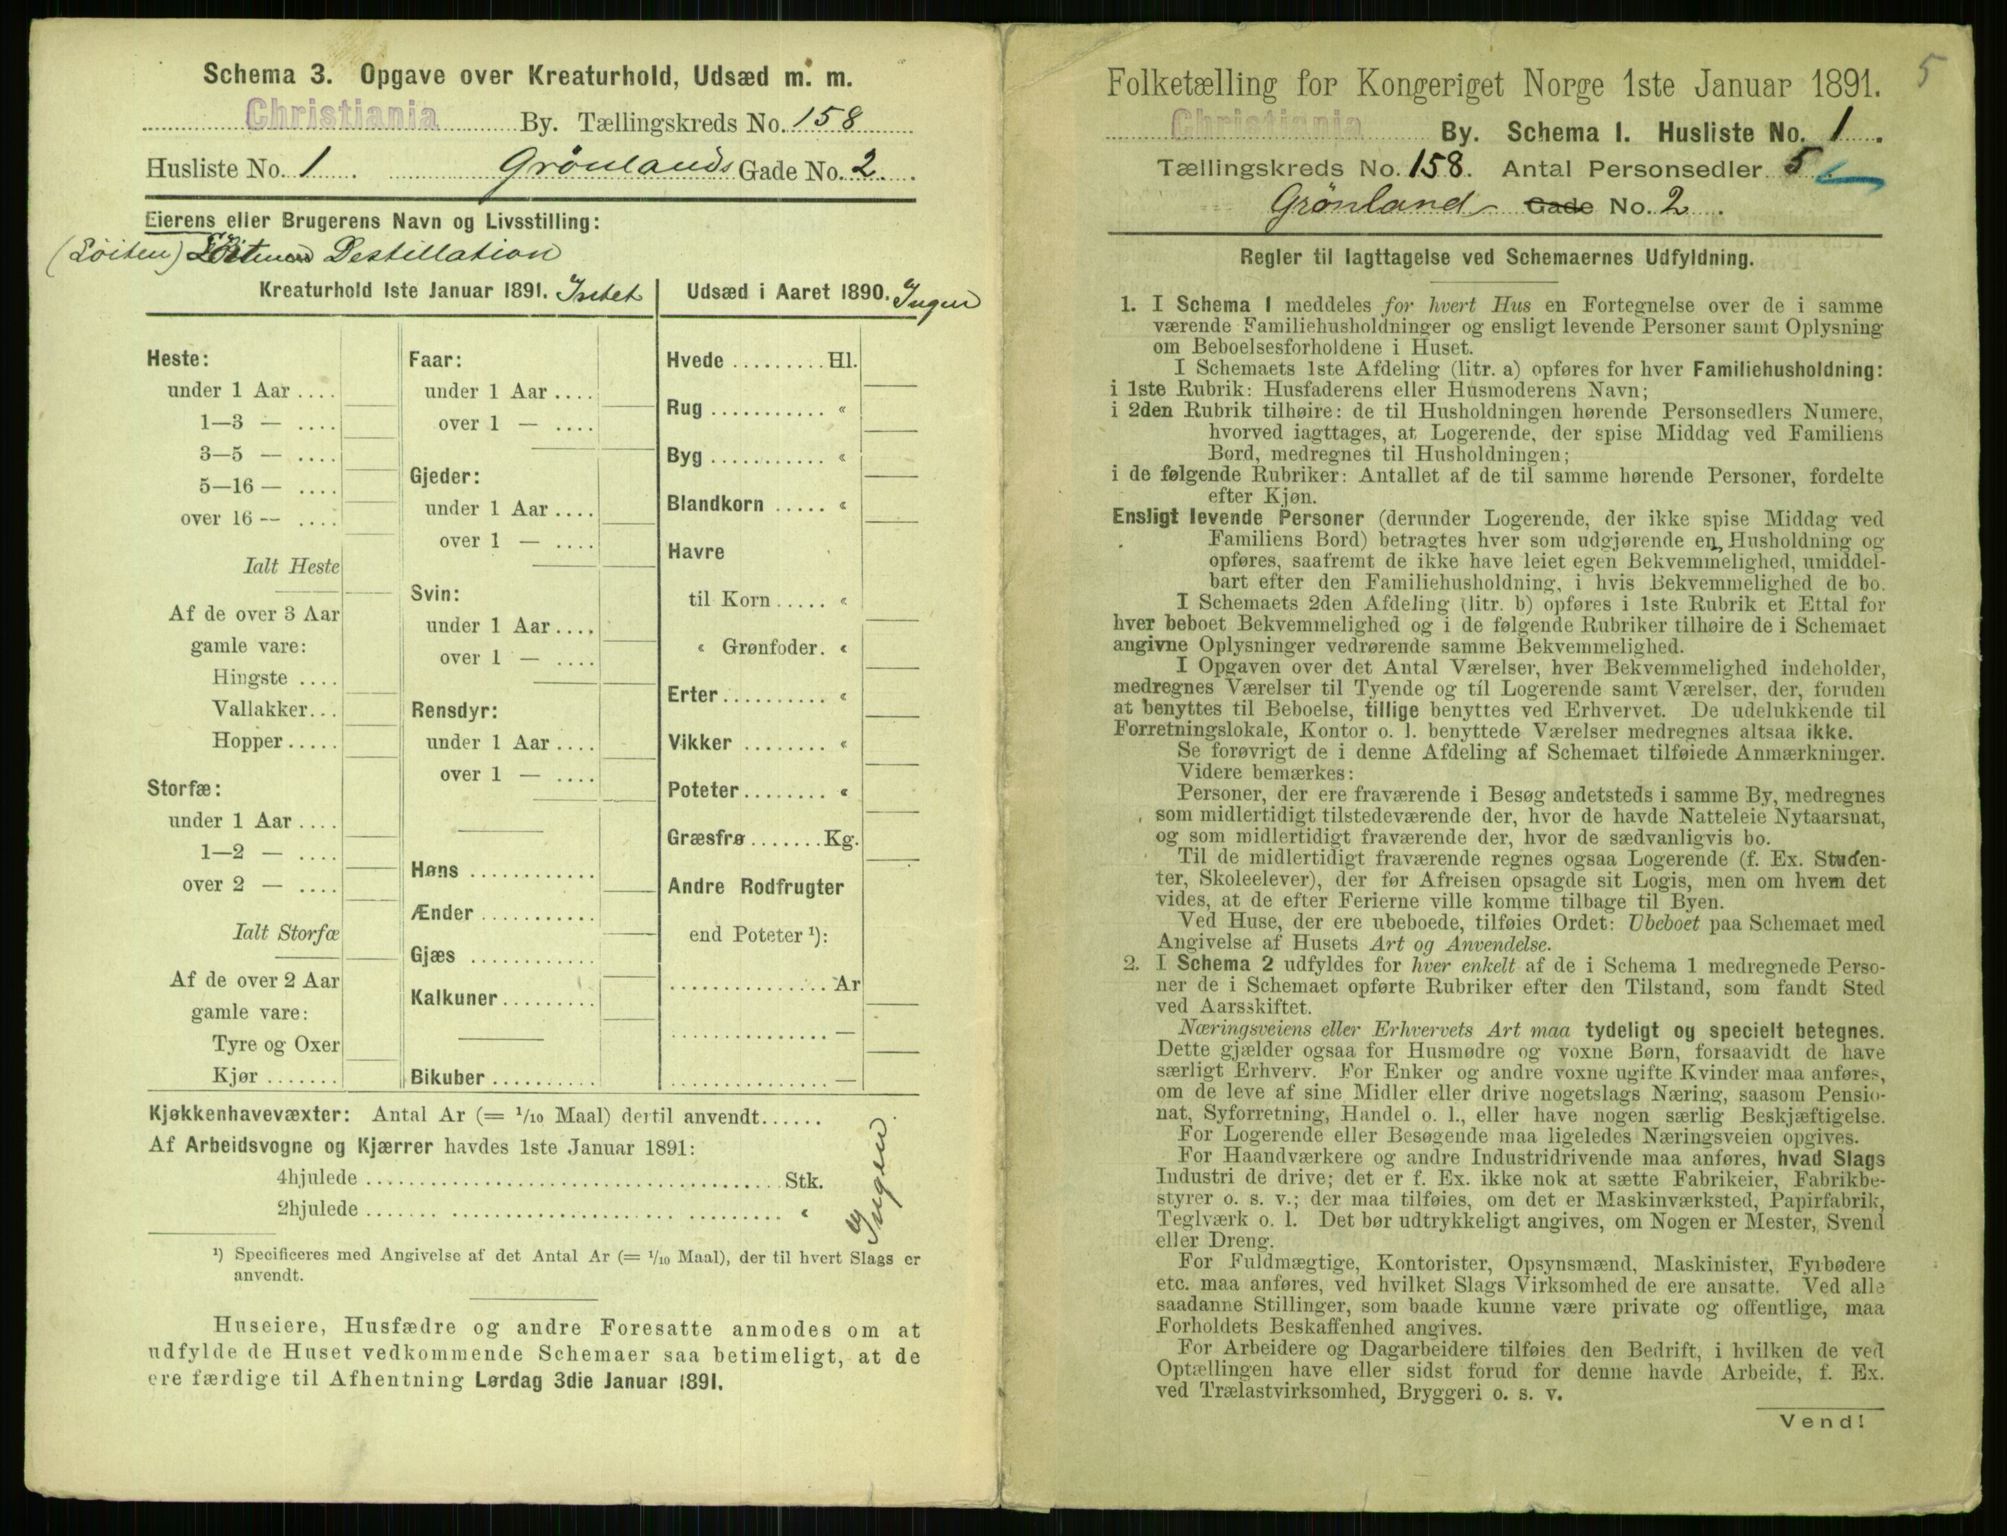 Schema 3. Opgave over Kreaturhold, Udsæd m. m.
Christiania By. Tællingskreds No. 158
Husliste No. 1. Grönlands Gade No. 2.
Eierens eller Brugerens Navn og Livsstilling:
(Löiten) Destillation
Kreaturhold 1ste Januar 1891. Intet
Heste:
under 1 Aar ....
1—3 — ....
3—5 — ....
5—16 — ....
over 16 — ....
Ialt Heste
Af de over 3 Aar
gamle vare:
Hingste ....
Vallakker...
Hopper.....
Storfæ:
under 1 Aar ....
1—2 — ....
over 2 — ....
Ialt Storfæ
Af de over 2 Aar
gamle vare:
Tyre og Oxer
Kjør .......
Faar:
under 1 Aar ....
over 1 — ....
Gjeder:
under 1 Aar ....
over 1 — ....
Svin:
under 1 Aar ....
over 1 — ....
Rensdyr:
under 1 Aar ....
over 1 — ....
Høns ............
Ænder ...........
Gjæs ............
Kalkuner.........
Bikuber ..........
Udsæd i Aaret 1890. Ingen
Hvede ......... Hl.
Rug ........... «
Byg ........... «
Blandkorn ..... «
Havre
til Korn ..... «
« Grønfoder. «
Erter.......... «
Vikker ........ «
Poteter........ «
Græsfrø ....... Kg.
Andre Rodfrugter
end Poteter ¹):
............... Ar
............... —
............... —
Kjøkkenhavevæxter: Antal Ar (= 1/10 Maal) dertil anvendt......
Af Arbeidsvogne og Kjærrer havdes 1ste Januar 1891:
4hjulede ........................................ Stk.
2hjulede ........................................ «
Ingen
¹) Specificeres med Angivelse af det Antal Ar (= 1/10 Maal), der til hvert Slags er
anvendt.
Huseiere, Husfædre og andre Foresatte anmodes om at
udfylde de Huset vedkommende Schemaer saa betimeligt, at de
ere færdige til Afhentning Lørdag 3die Januar 1891.
5
Folketælling for Kongeriget Norge 1ste Januar 1891.
Christiania By. Schema 1. Husliste No. 1.
Tællingskreds No. 158. Antal Personsedler 5
Grönland Gade No. 2.
Regler til Iagttagelse ved Schemaernes Udfyldning.
1. I Schema 1 meddeles for hvert Hus en Fortegnelse over de i samme
værende Familiehusholdninger og ensligt levende Personer samt Oplysning
om Beboelsesforholdene i Huset.
I Schemaets 1ste Afdeling (litr. a) opføres for hver Familiehusholdning:
i 1ste Rubrik: Husfaderens eller Husmoderens Navn;
i 2den Rubrik tilhøire: de til Husholdningen hørende Personsedlers Numere,
hvorved iagttages, at Logerende, der spise Middag ved Familiens
Bord, medregnes til Husholdningen;
i de følgende Rubriker: Antallet af de til samme hørende Personer, fordelte
efter Kjøn.
Ensligt levende Personer (derunder Logerende, der ikke spise Middag ved
Familiens Bord) betragtes hver som udgjørende en Husholdning og
opføres, saafremt de ikke have leiet egen Bekvemmelighed, umiddel-
bart efter den Familiehusholdning, i hvis Bekvemmelighed de bo.
I Schemaets 2den Afdeling (litr. b) opføres i 1ste Rubrik et Ettal for
hver beboet Bekvemmelighed og i de følgende Rubriker tilhøire de i Schemaet
angivne Oplysninger vedrørende samme Bekvemmelighed.
I Opgaven over det Antal Værelser, hver Bekvemmelighed indeholder,
medregnes Værelser til Tyende og til Logerende samt Værelser, der, foruden
at benyttes til Beboelse, tillige benyttes ved Erhvervet. De udelukkende til
Forretningslokale, Kontor o. l. benyttede Værelser medregnes altsaa ikke.
Se forøvrigt de i denne Afdeling af Schemaet tilføiede Anmærkninger.
Videre bemærkes:
Personer, der ere fraværende i Besøg andetsteds i samme By, medregnes
som midlertidigt tilstedeværende der, hvor de havde Natteleie Nytaarsnat,
og som midlertidigt fraværende der, hvor de sædvanligvis bo.
Til de midlertidigt fraværende regnes ogsaa Logerende (f. Ex. Studen-
ter, Skoleelever), der før Afreisen opsagde sit Logis, men om hvem det
vides, at de efter Ferierne ville komme tilbage til Byen.
Ved Huse, der ere ubeboede, tilføies Ordet: Ubeboet paa Schemaet med
Angivelse af Husets Art og Anvendelse.
2. I Schema 2 udfyldes for hver enkelt af de i Schema 1 medregnede Perso-
ner de i Schemaet opførte Rubriker efter den Tilstand, som fandt Sted
ved Aarsskiftet.
Næringsveiens eller Erhvervets Art maa tydeligt og specielt betegnes.
Dette gjælder ogsaa for Husmødre og voxne Børn, forsaavidt de have
særligt Erhverv. For Enker og andre voxne ugifte Kvinder maa anføres,
om de leve af sine Midler eller drive nogetslags Næring, saasom Pensio-
nat, Syforretning, Handel o. l., eller have nogen særlig Beskjæftigelse.
For Logerende eller Besøgende maa ligeledes Næringsveien opgives.
For Haandværkere og andre Industridrivende maa anføres, hvad Slags
Industri de drive; det er f. Ex. ikke nok at sætte Fabrikeier, Fabrikbe-
styrer o. s. v.; der maa tilføies, om det er Maskinværksted, Papirfabrik,
Teglværk o. l. Det bør udtrykkeligt angives, om Nogen er Mester, Svend
eller Dreng.
For Fuldmægtige, Kontorister, Opsynsmænd, Maskinister, Fyrbødere
etc. maa anføres, ved hvilket Slags Virksomhed de ere ansatte. Ved alle
saadanne Stillinger, som baade kunne være private og offentlige, maa
Forholdets Beskaffenhed angives.
For Arbeidere og Dagarbeidere tilføies den Bedrift, i hvilken de ved
Optællingen have eller sidst forud for denne havde Arbeide, f. Ex.
ved Trælastvirksomhed, Bryggeri o. s. v.
Vend!